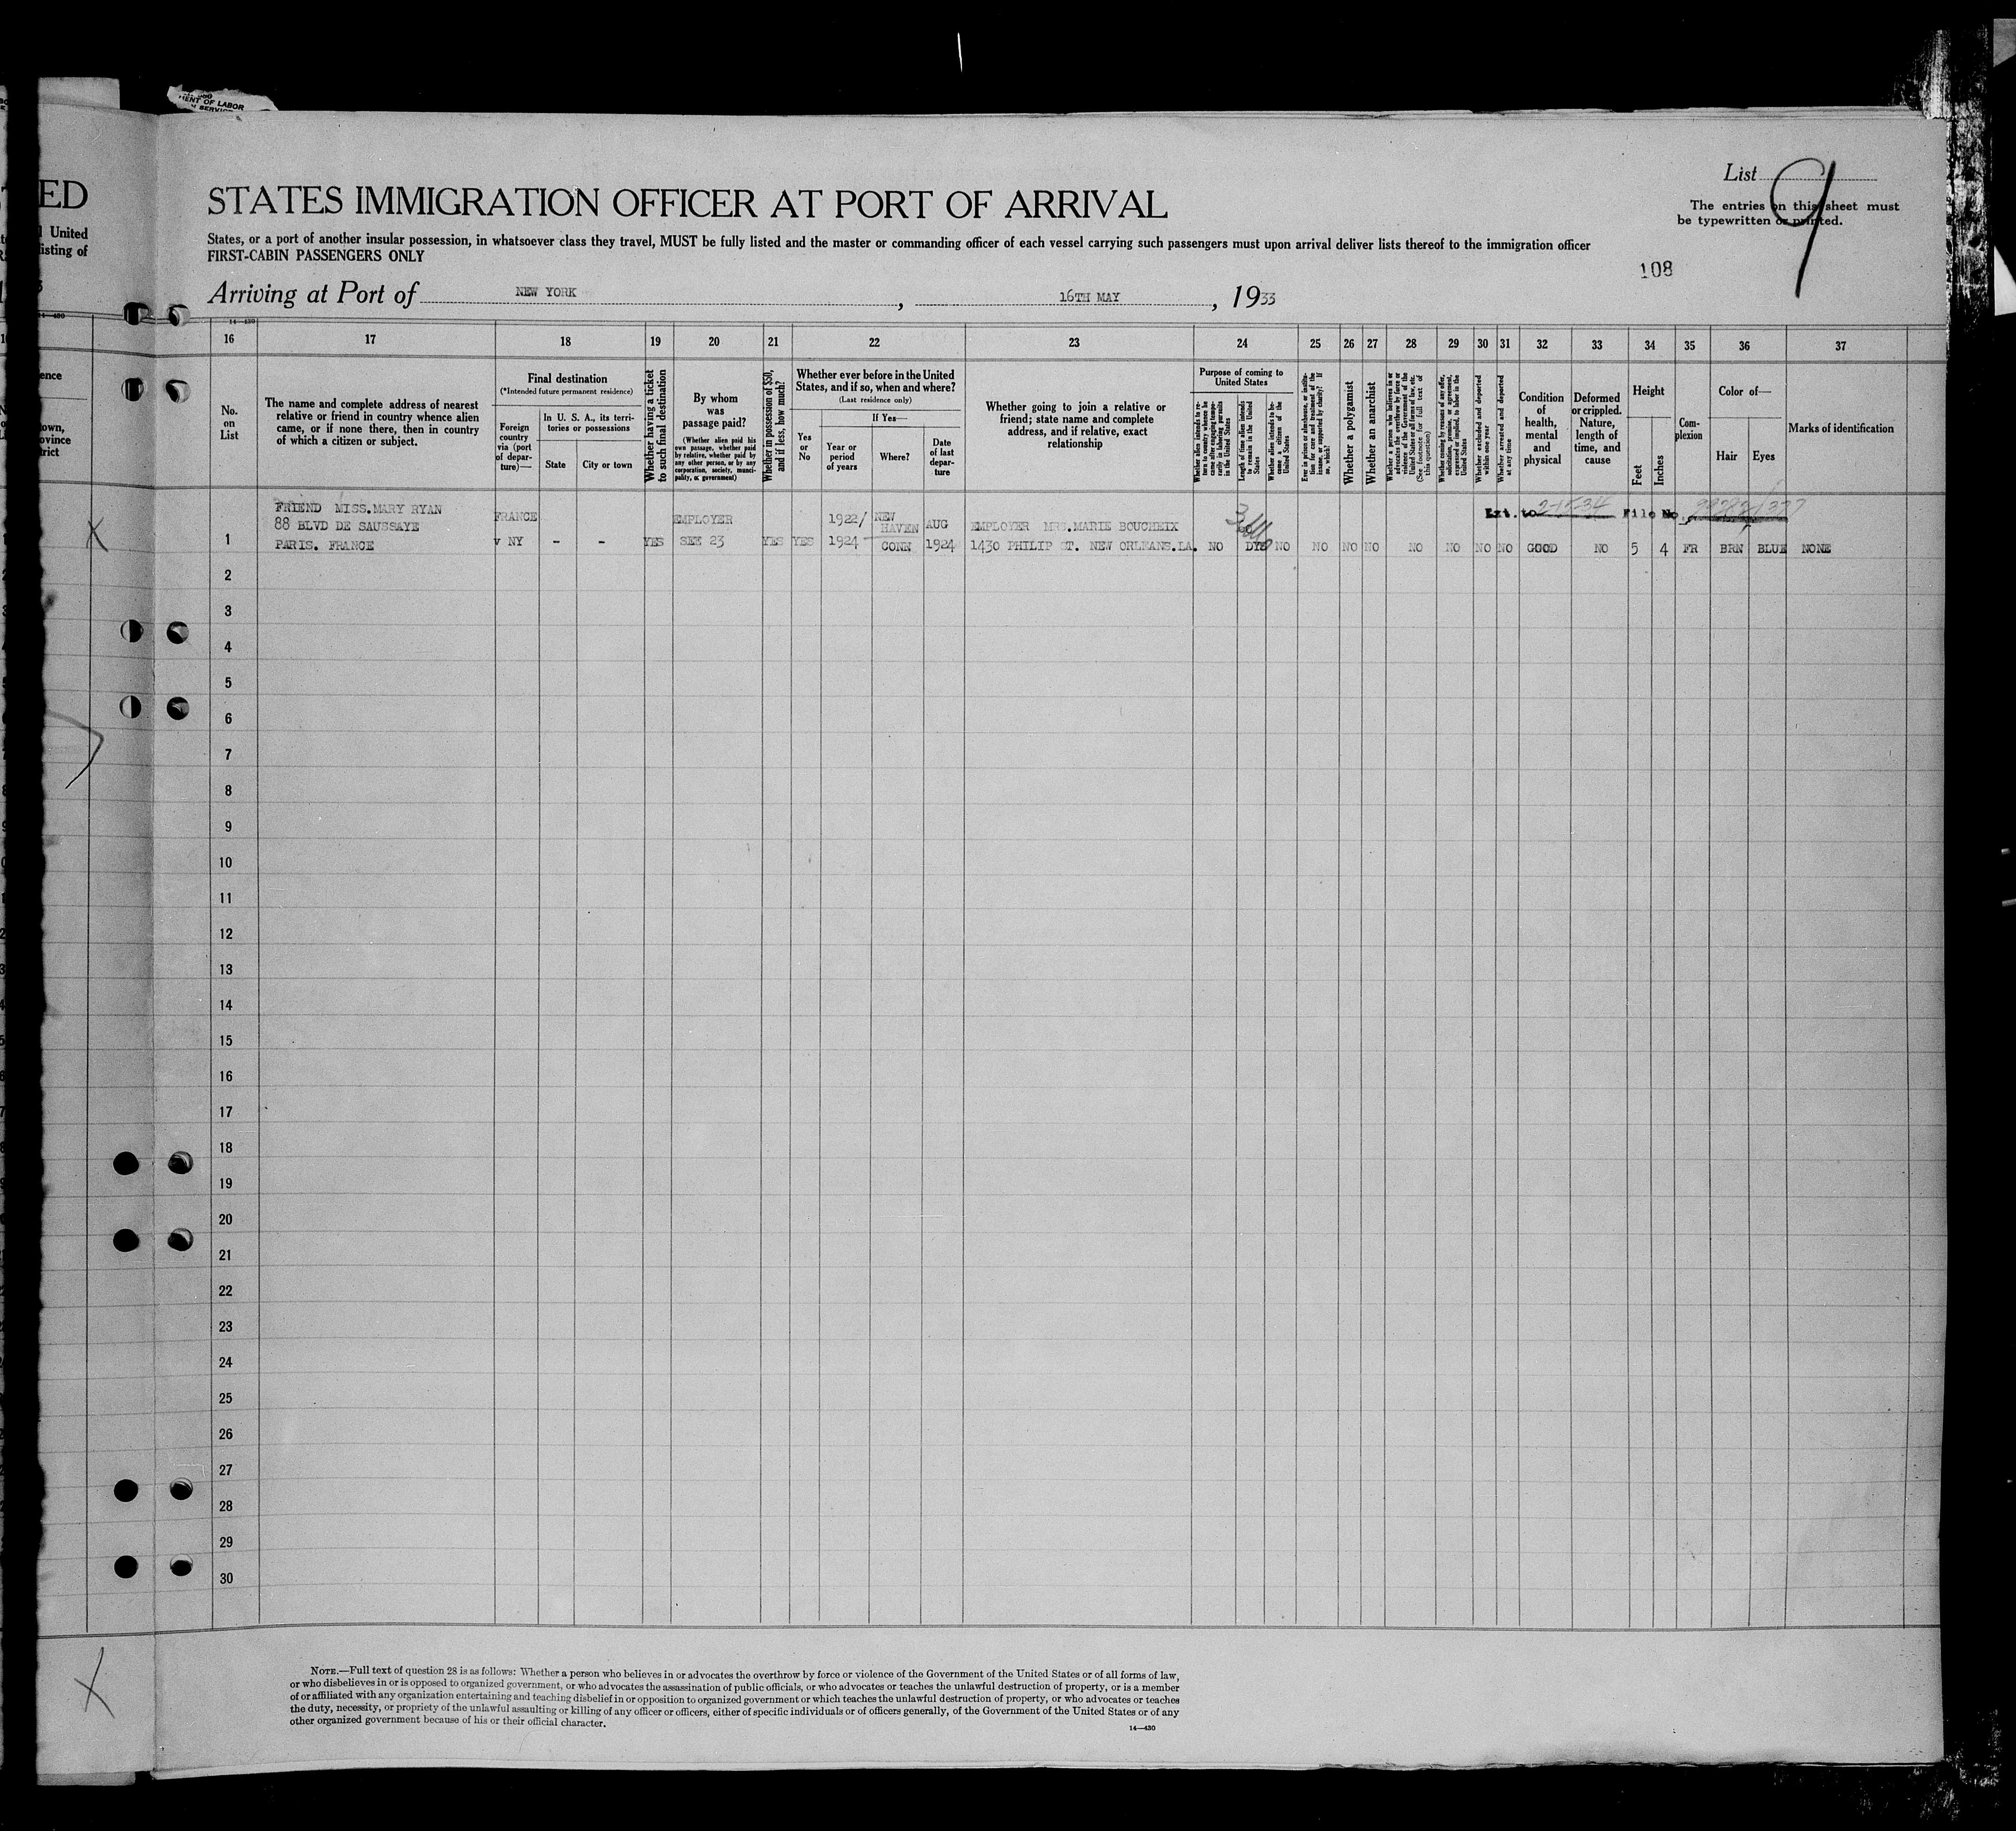 MENT OF LABOR
SERVICE
ED
United
listing of
STATES IMMIGRATION OFFICER AT PORT OF ARRIVAL
List 9
The entries on this sheet must
be typewritten or printed.
States, or a port of another insular possession, in whatsoever class they travel, MUST be fully listed and the master or commanding officer of each vessel carrying such passengers must upon arrival deliver lists thereof to the immigration officer
FIRST-CABIN PASSENGERS ONLY
108
Arriving at Port of NEW YORK, 16TH MAY, 1933
14—430
16 17 18 19 20 21 22 23 24 25 26 27 28 29 30 31 32 33 34 35 36 37
No.
on
List
The name and complete address of nearest
relative or friend in country whence alien
came, or if none there, then in country
of which a citizen or subject.
Final destination
(*Intended future permanent residence)
Foreign
country
via (port
of depar-
ture)—
In U. S. A., its terri-
tories or possessions
State
City or town
Whether having a ticket
to such final destination
By whom
was
passage paid?
(Whether alien paid his
own passage, whether paid
by relative, whether paid by
any other person, or by any
corporation, society, munici-
pality, or government)
Whether in possession of $50,
and if less, how much?
Whether ever before in the United
States, and if so, when and where?
(Last residence only)
Yes
or
No
If Yes—
Year or
period
of years
Where?
Date
of last
depar-
ture
Whether going to join a relative or
friend; state name and complete
address, and if relative, exact
relationship
Purpose of coming to
United States
Whether alien intends to re-
turn to country whence he
came after engaging tempo-
rarily in laboring pursuits
in the United States
Length of time alien intends
to remain in the United
States
Whether alien intends to be-
come a citizen of the
United States
Ever in prison or almshouse, or institu-
tion for care and treatment of the
insane, or supported by charity? If
so, which?
Whether a polygamist
Whether an anarchist
Whether a person who believes in or
advocates the overthrow by force or
violence of the Government of the
United States or all forms of law, etc.
(See footnote for full text of
this question)
Whether coming by reasons of any offer,
solicitation, promise, or agreement,
expressed or implied, to labor in the
United States
Whether excluded and deported
within one year
Whether arrested and deported
at any time
Condition
of
health,
mental
and
physical
Deformed
or crippled.
Nature,
length of
time, and
cause
Height
Feet
Inches
Com-
plexion
Color of—
Hair
Eyes
Marks of identification
FRIEND MISS.MARY RYAN
88 BLVD DE SAUSSAYE FRANCE EMPLOYER 1922/ NEW HAVEN AUG EMPLOYER MRS.MARIE BOUCHEIX Ext. to 2-15-34 File No.
1 PARIS. FRANCE v NY - - YES SEE 23 YES YES 1924 CONN 1924 1430 PHILIP ST. NEW ORLEANS.LA. NO NO NO NO NO NO NO NO NO GOOD NO 5 4 FR BRN BLUE NONE
2
3
4
5
6
7
8
9
10
11
12
13
14
15
16
17
18
19
20
21
22
23
24
25
26
27
28
29
30
NOTE.—Full text of question 28 is as follows: Whether a person who believes in or advocates the overthrow by force or violence of the Government of the United States or of all forms of law,
or who disbelieves in or is opposed to organized government, or who advocates the assassination of public officials, or who advocates or teaches the unlawful destruction of property, or is a member
of or affiliated with any organization entertaining and teaching disbelief in or opposition to organized government or which teaches the unlawful destruction of property, or who advocates or teaches
the duty, necessity, or propriety of the unlawful assaulting or killing of any officer or officers, either of specific individuals or of officers generally, of the Government of the United States or of any
other organized government because of his or their official character.
14—430